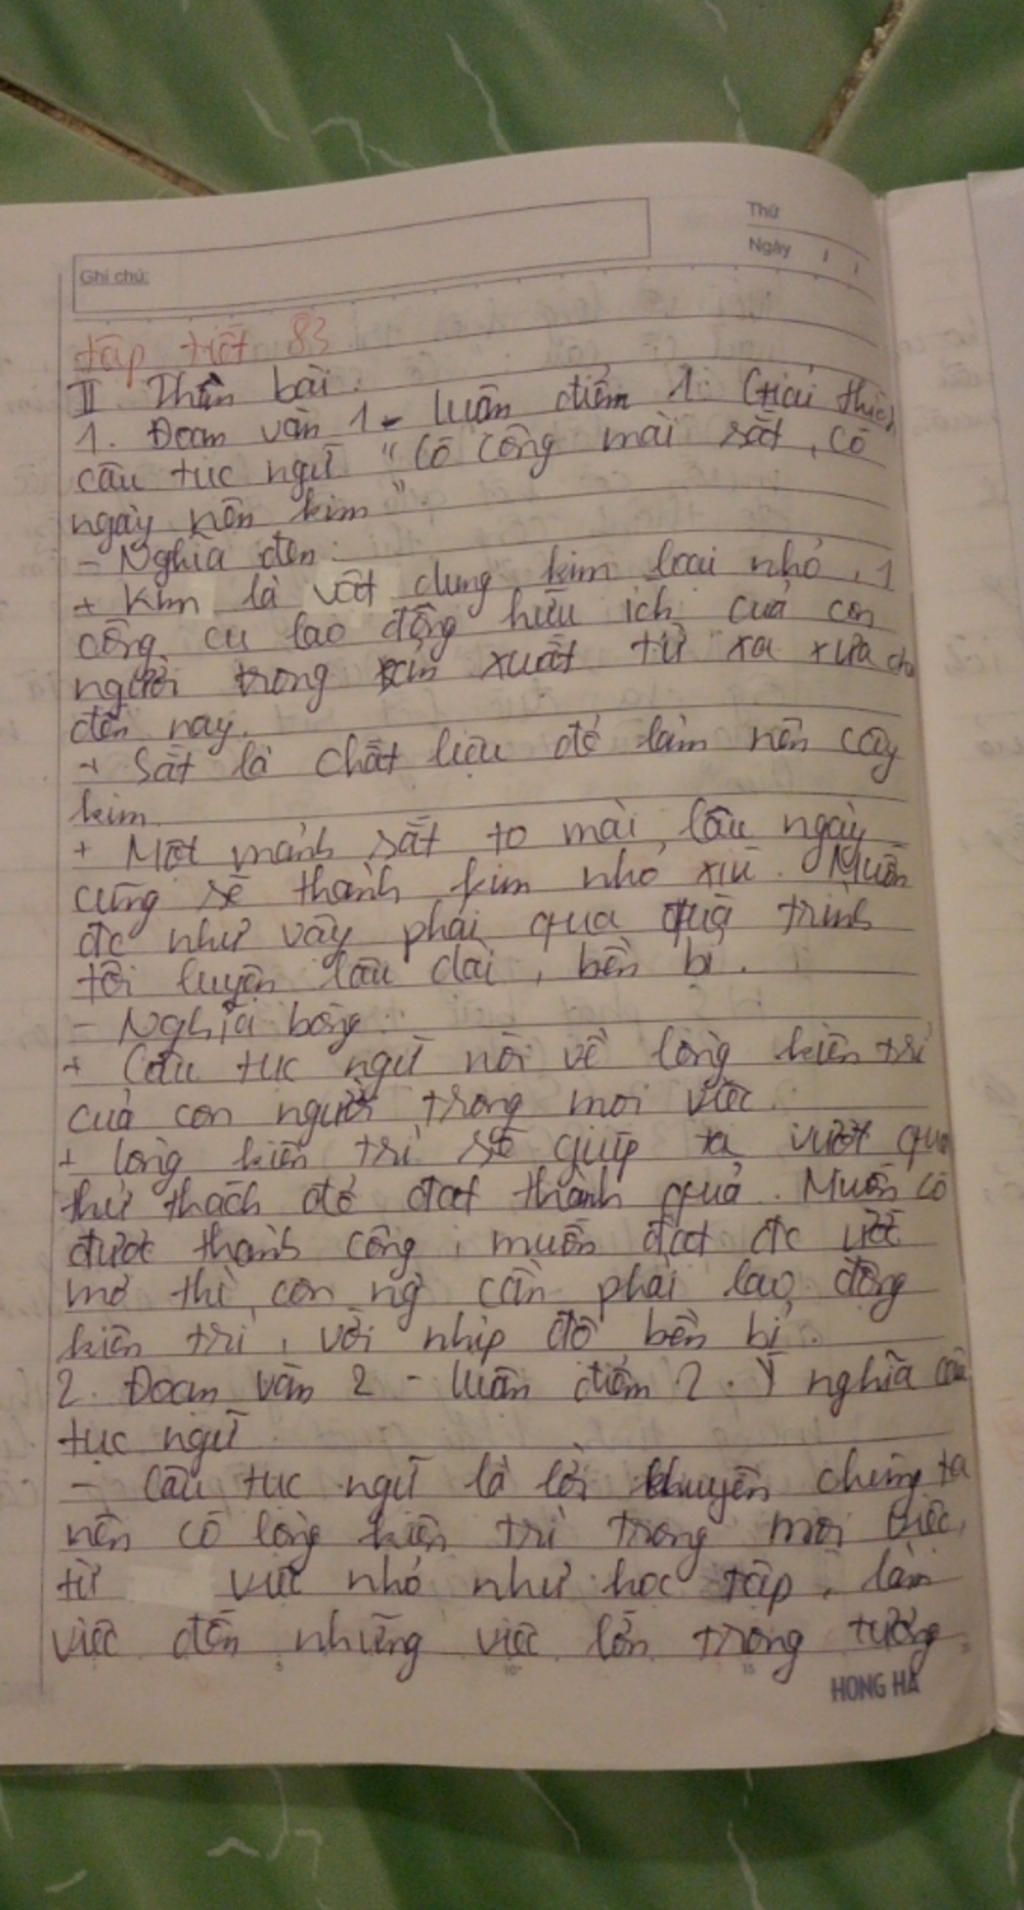 Thứ
Ngày
Ghi chú:
tập tiết 83
II Thân bài:
1. Đoạn văn 1 - luận điểm 1: Giải thích
câu tục ngữ "Có công mài sắt, có
ngày nên kim"
- Nghĩa đen:
+ Kim là vật dụng kim loại nhỏ, 1
công cụ lao động hữu ích của con
người trong sản xuất từ xa xưa cho
đến nay.
+ Sắt là chất liệu để làm nên cây
kim.
+ Một mảnh sắt to mài lâu ngày
cũng sẽ thành kim nhỏ xíu. Muốn
đc như vậy phải qua quá trình
tôi luyện lâu dài, bền bỉ.
- Nghĩa bóng:
+ Câu tục ngữ nói về lòng kiên trì
của con người trong mọi việc.
+ lòng kiên trì sẽ giúp ta vượt qua
thử thách để đạt thành quả. Muốn có
được thành công, muốn đạt đc ước
mơ thì con ng cần phải lao động
kiên trì, với nhịp độ bền bỉ.
2. Đoạn văn 2 - luận điểm 2. Ý nghĩa câu
tục ngữ
- Câu tục ngữ là lời khuyên chúng ta
nên có lòng kiên trì trong mọi việc,
từ việc nhỏ như học tập, làm
việc đến những việc lớn trong tương
5 10 15
HONG HA